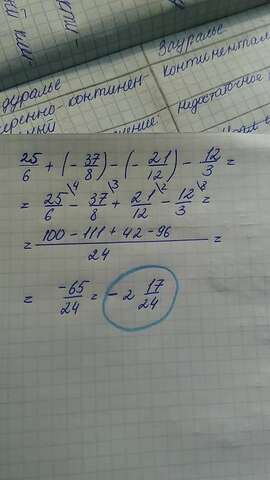 Зауралье
дуралье
континентал
ренно-континен-
недостаточное
25/6 + (- 37/8) - (- 21/12) - 12/3 =
= 25/6 \4 - 37/8 \3 + 21/12 \2 - 12/3 \8 =
= (100 - 111 + 42 - 96)/24 =
= -65/24 = - 2 17/24